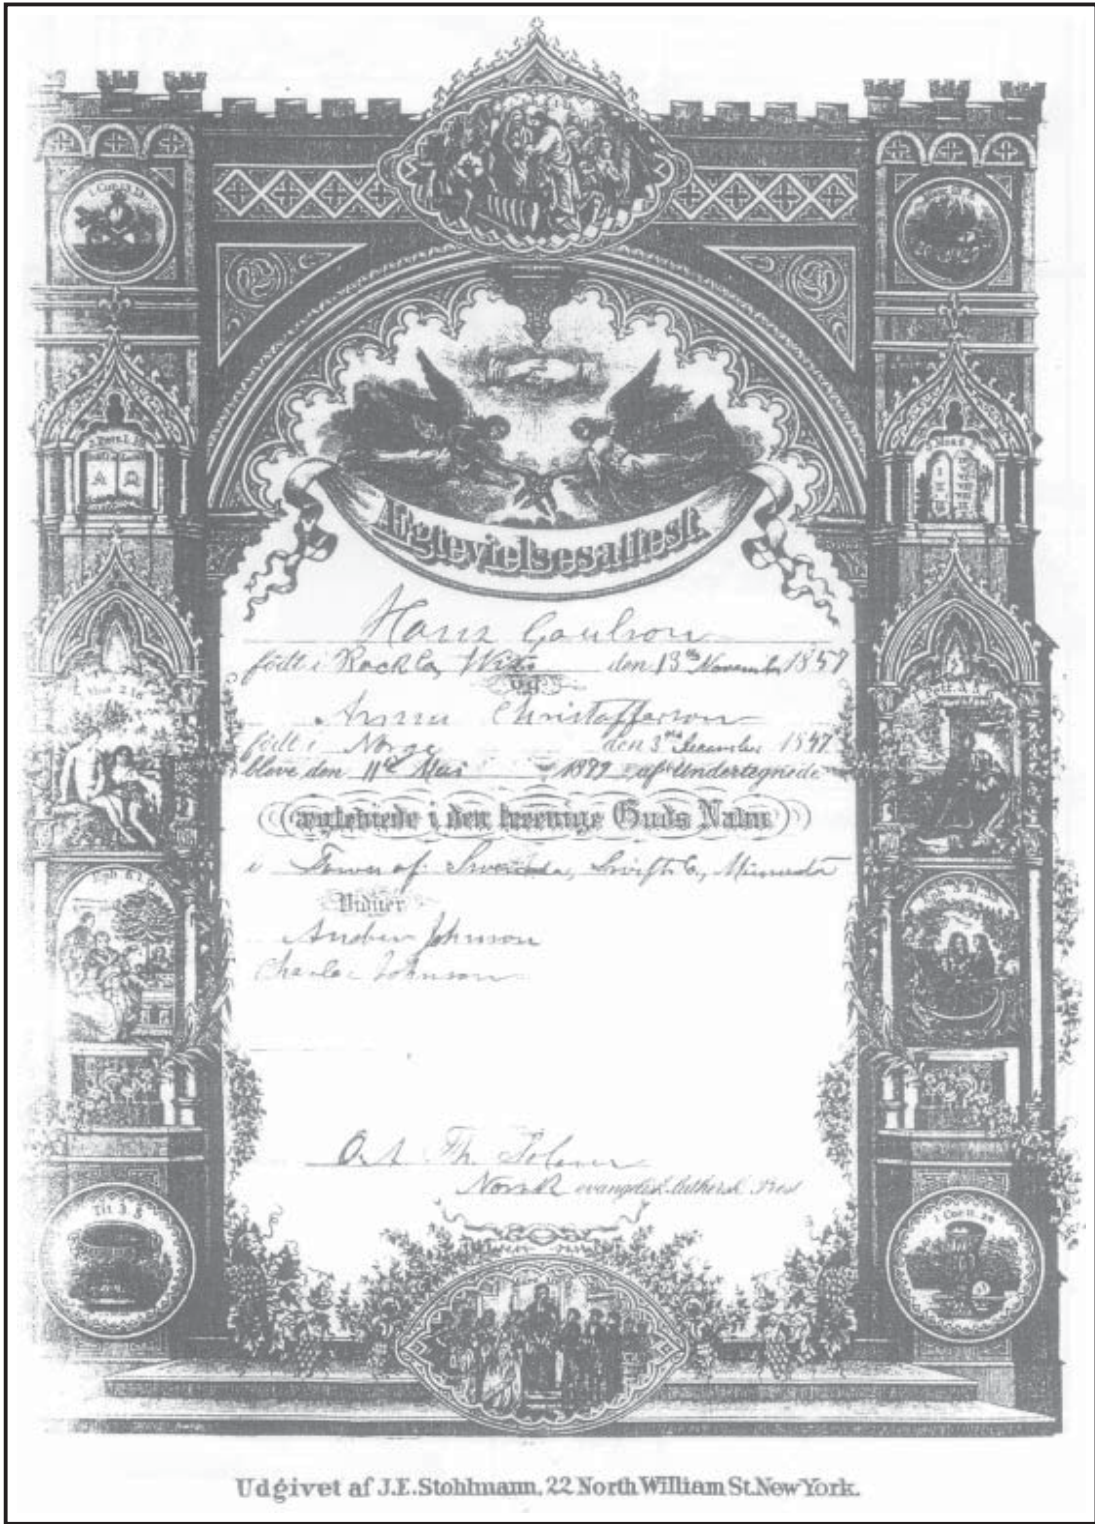 1 Cor. 13, 13
Ægtevielsesattest
Hans Gaulson
født i Rock Co, Wis den 13th November 1857
og
Anna Christofferson
født i Norge den 3rd December 1847
bleve den 11te Mai af Undertegnede
ægteviede i den treenige Guds Navn
i Town of Swenoda, Swift Co, Minnesota
Vidner
Andrew Johnson
Charles Johnson
O. A. Th. Solem
Norsk evangelisk-luthersk Prest
Tit 3. 5
1 Cor 11. 28
Udgivet af J.E.Stohlmann, 22 North William St. New York.